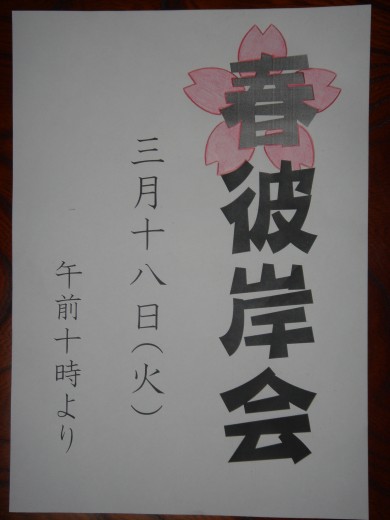 春彼岸会
三月十八日(火)
午前十時より